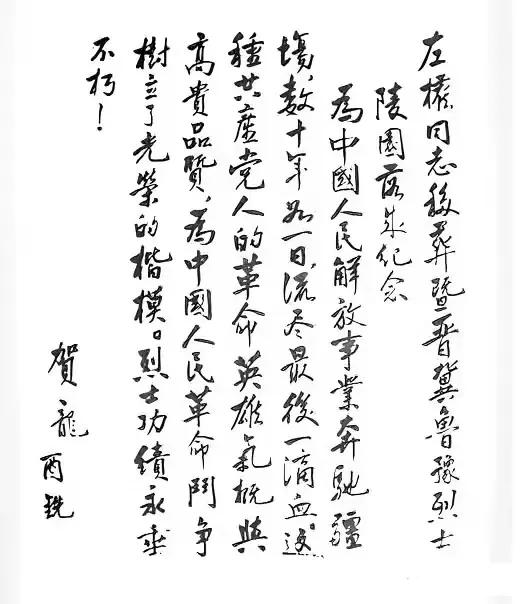 左權同志移葬暨晉冀魯豫烈士
陵園落成纪念
為中國人民解放事業奔馳疆
場，数十年如一日，流尽最後一滴血。这
種共産党人的革命英雄氣概與
高貴品質，為中國人民革命鬥争
樹立了光榮的楷模。烈士功績永垂
不朽！
賀龍 酉銑